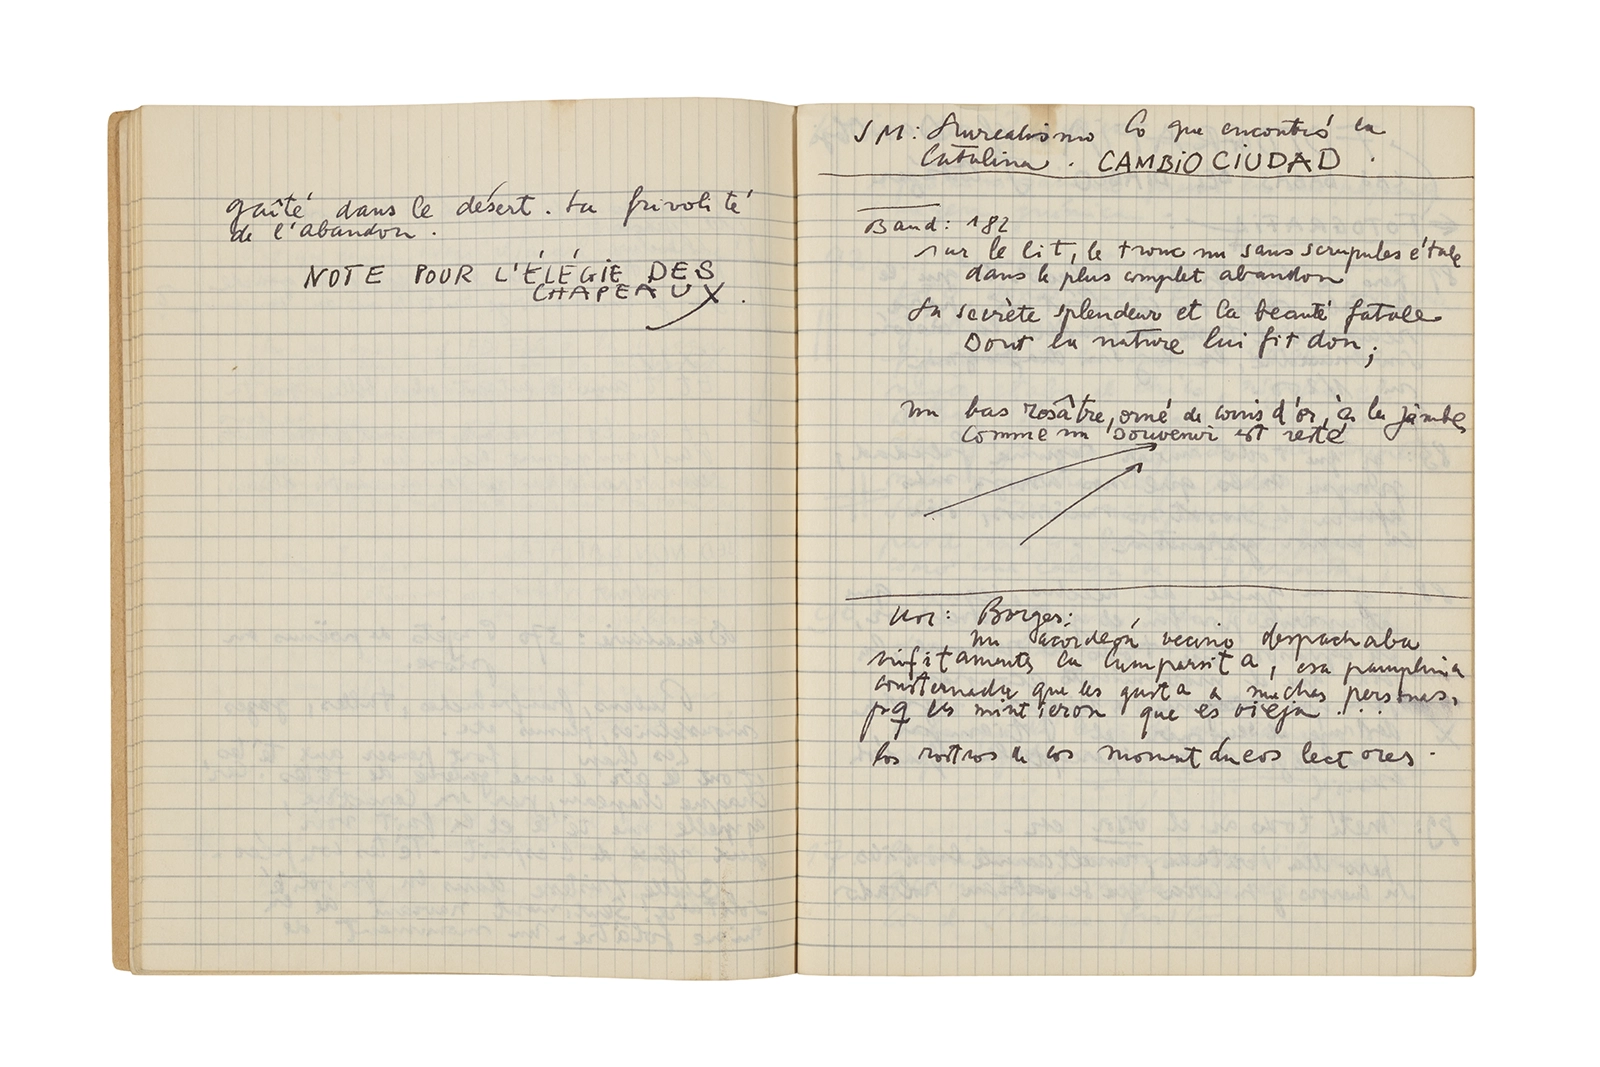 gaîté dans le désert. La frivolité
de l'abandon.
NOTE POUR L'ÉLÉGIE DES
CHAPEAUX.
SM: Surrealismo lo que encontró en
Catalina. CAMBIO CIUDAD.
Baud: 182
sur le lit, le tronc nu sans scrupules étale
dans le plus complet abandon
La secrète splendeur et la beauté fatale
Dont la nature lui fit don;
un bas rosâtre, orné de coins d'or, à la jambe
comme un souvenir est resté
Borges:
un acordeón vecino despachaba
infitamente la Cumparsita, esa pamplina
consternada que les gusta a muchas personas,
pq les mintieron que es vieja...
los rostros de los momentáneos lectores.